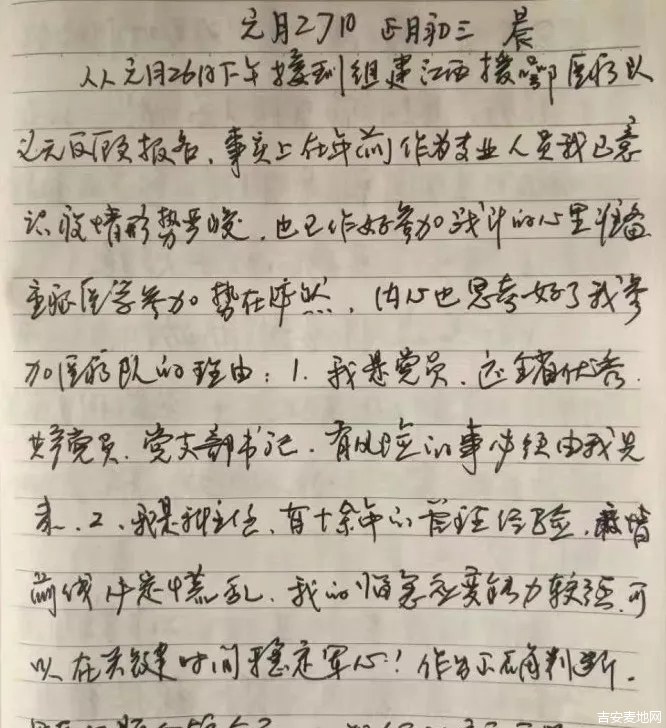 元月27日 正月初三 晨
从元月26日下午接到组建江西援鄂医疗队
义无反顾报名，事实上在年前作为专业人员我已意
识疫情形势严峻，也已作好参加战斗的心里准备
重症医学参加势在必然，内心也思考好了我参
加医疗队的理由：1、我是党员，还全省优秀
共产党员、党支部书记，有风险的事必须由我先
来，2、我是科主任，有十余年的管理经验，疫情
前线肯定慌乱，我的临急应变能力较强，可
以在关键时间稳定军心！作出正确判断。
吉安麦地网